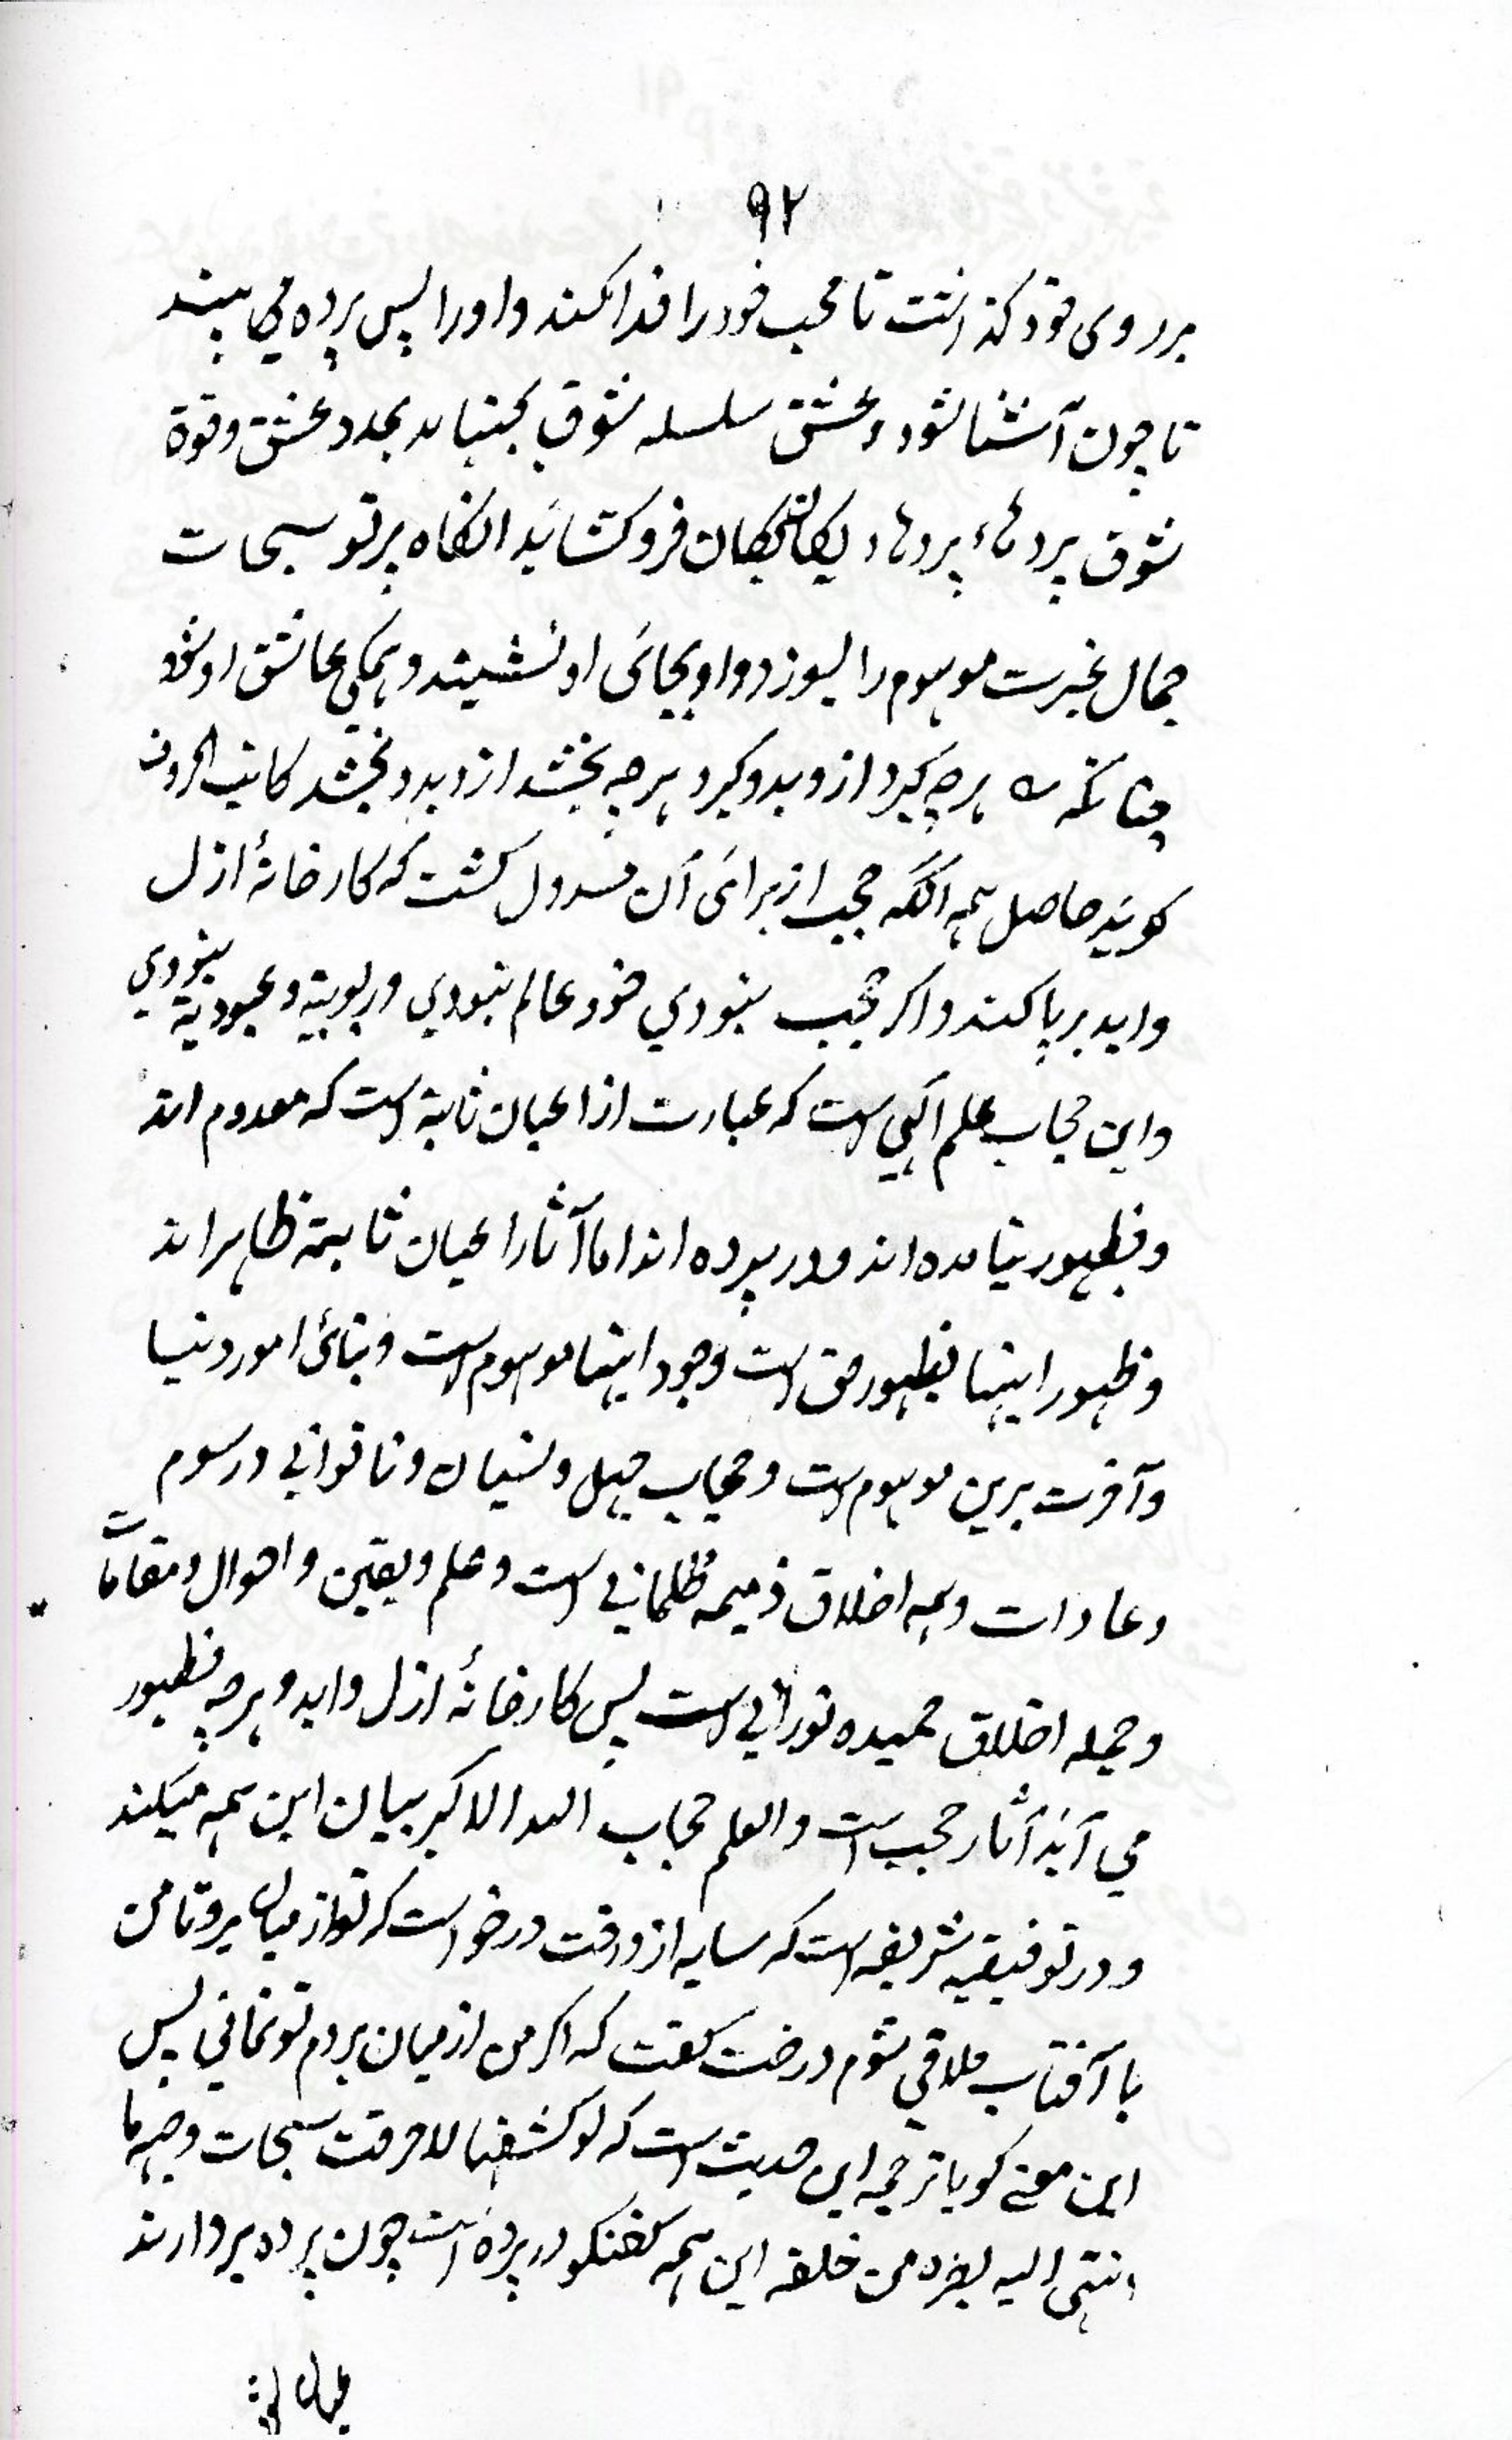 ۹۲
بر روی خود گذاشت تا محب خود را فدا کند و او را پس پرده می بیند
تا چون آشنا شود و عشق سلسله شوق بجنباند بمدد عشق و قوة
شوق پردهاء یکان یکان فرو کشاید انگاه پرتو سبحات
جمال غیرت موهوم را بسوزد و او بجائی او نشیند و همگی عاشق او شود
چنانکه هر چه گیرد ازو بدو گیرد هر چه بخشد ازو بدو بخشد کاتب الحروف
گوید حاصل همه آنکه حجب از برائی آن مسدول گشت که کارخانهٔ ازل
و ابد بر پا کند و اگر حجب نبودي خود عالم نبودي و ربوبیة و عبودیة نبودي
و این حجاب علم الهی است که عبارت از اعیان ثابتة است که معدوم اند
و بظهور نیامده اند و در پرده اند اما آثار اعیان ثابته ظاهر اند
و ظهور اینها بظهور حق است وجود اینها موهوم است و بنائی امور دنیا
و آخرت برین موهوم است و حجاب جهل و نسیان و ناتوانی و رسوم
و عادات و همه اخلاق ذمیمه ظلمانی است و علم و یقین و احوال و مقامات
و جمله اخلاق حمیده نورانی است پس کارخانهٔ ازل و ابد و هر چه بظهور
می آید آثار حجب است و العلم حجاب الله الاکبر بیان این همه میکند
و در توفیقیه شریفه است که سایه از درخت درخواست که تو از میان برو تا من
با آفتاب ملاقی شوم درخت گفت که اگر من از میان بروم تو نمانی پس
این معنی گویا ترجمه این حدیث است که لو کشفها لاحرقت سبحات وجهه ما
انتهی الیه بصره من خلقه این همه گفتگو در پرده است چون پرده بردارند